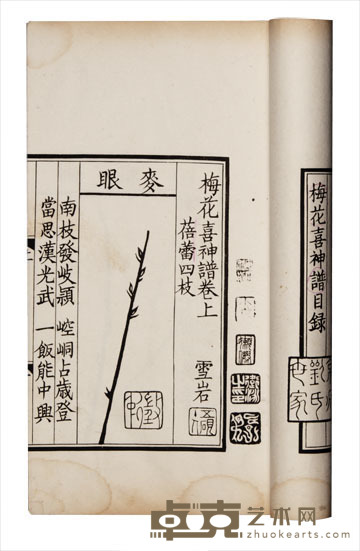 梅花喜神譜目録
梅花喜神譜卷上
蓓蕾四枝
雪岩
麥眼
南枝發岐穎 崆峒占歲登
當思漢光武 一飯能中興
卓克艺术网
www.zhuokearts.com